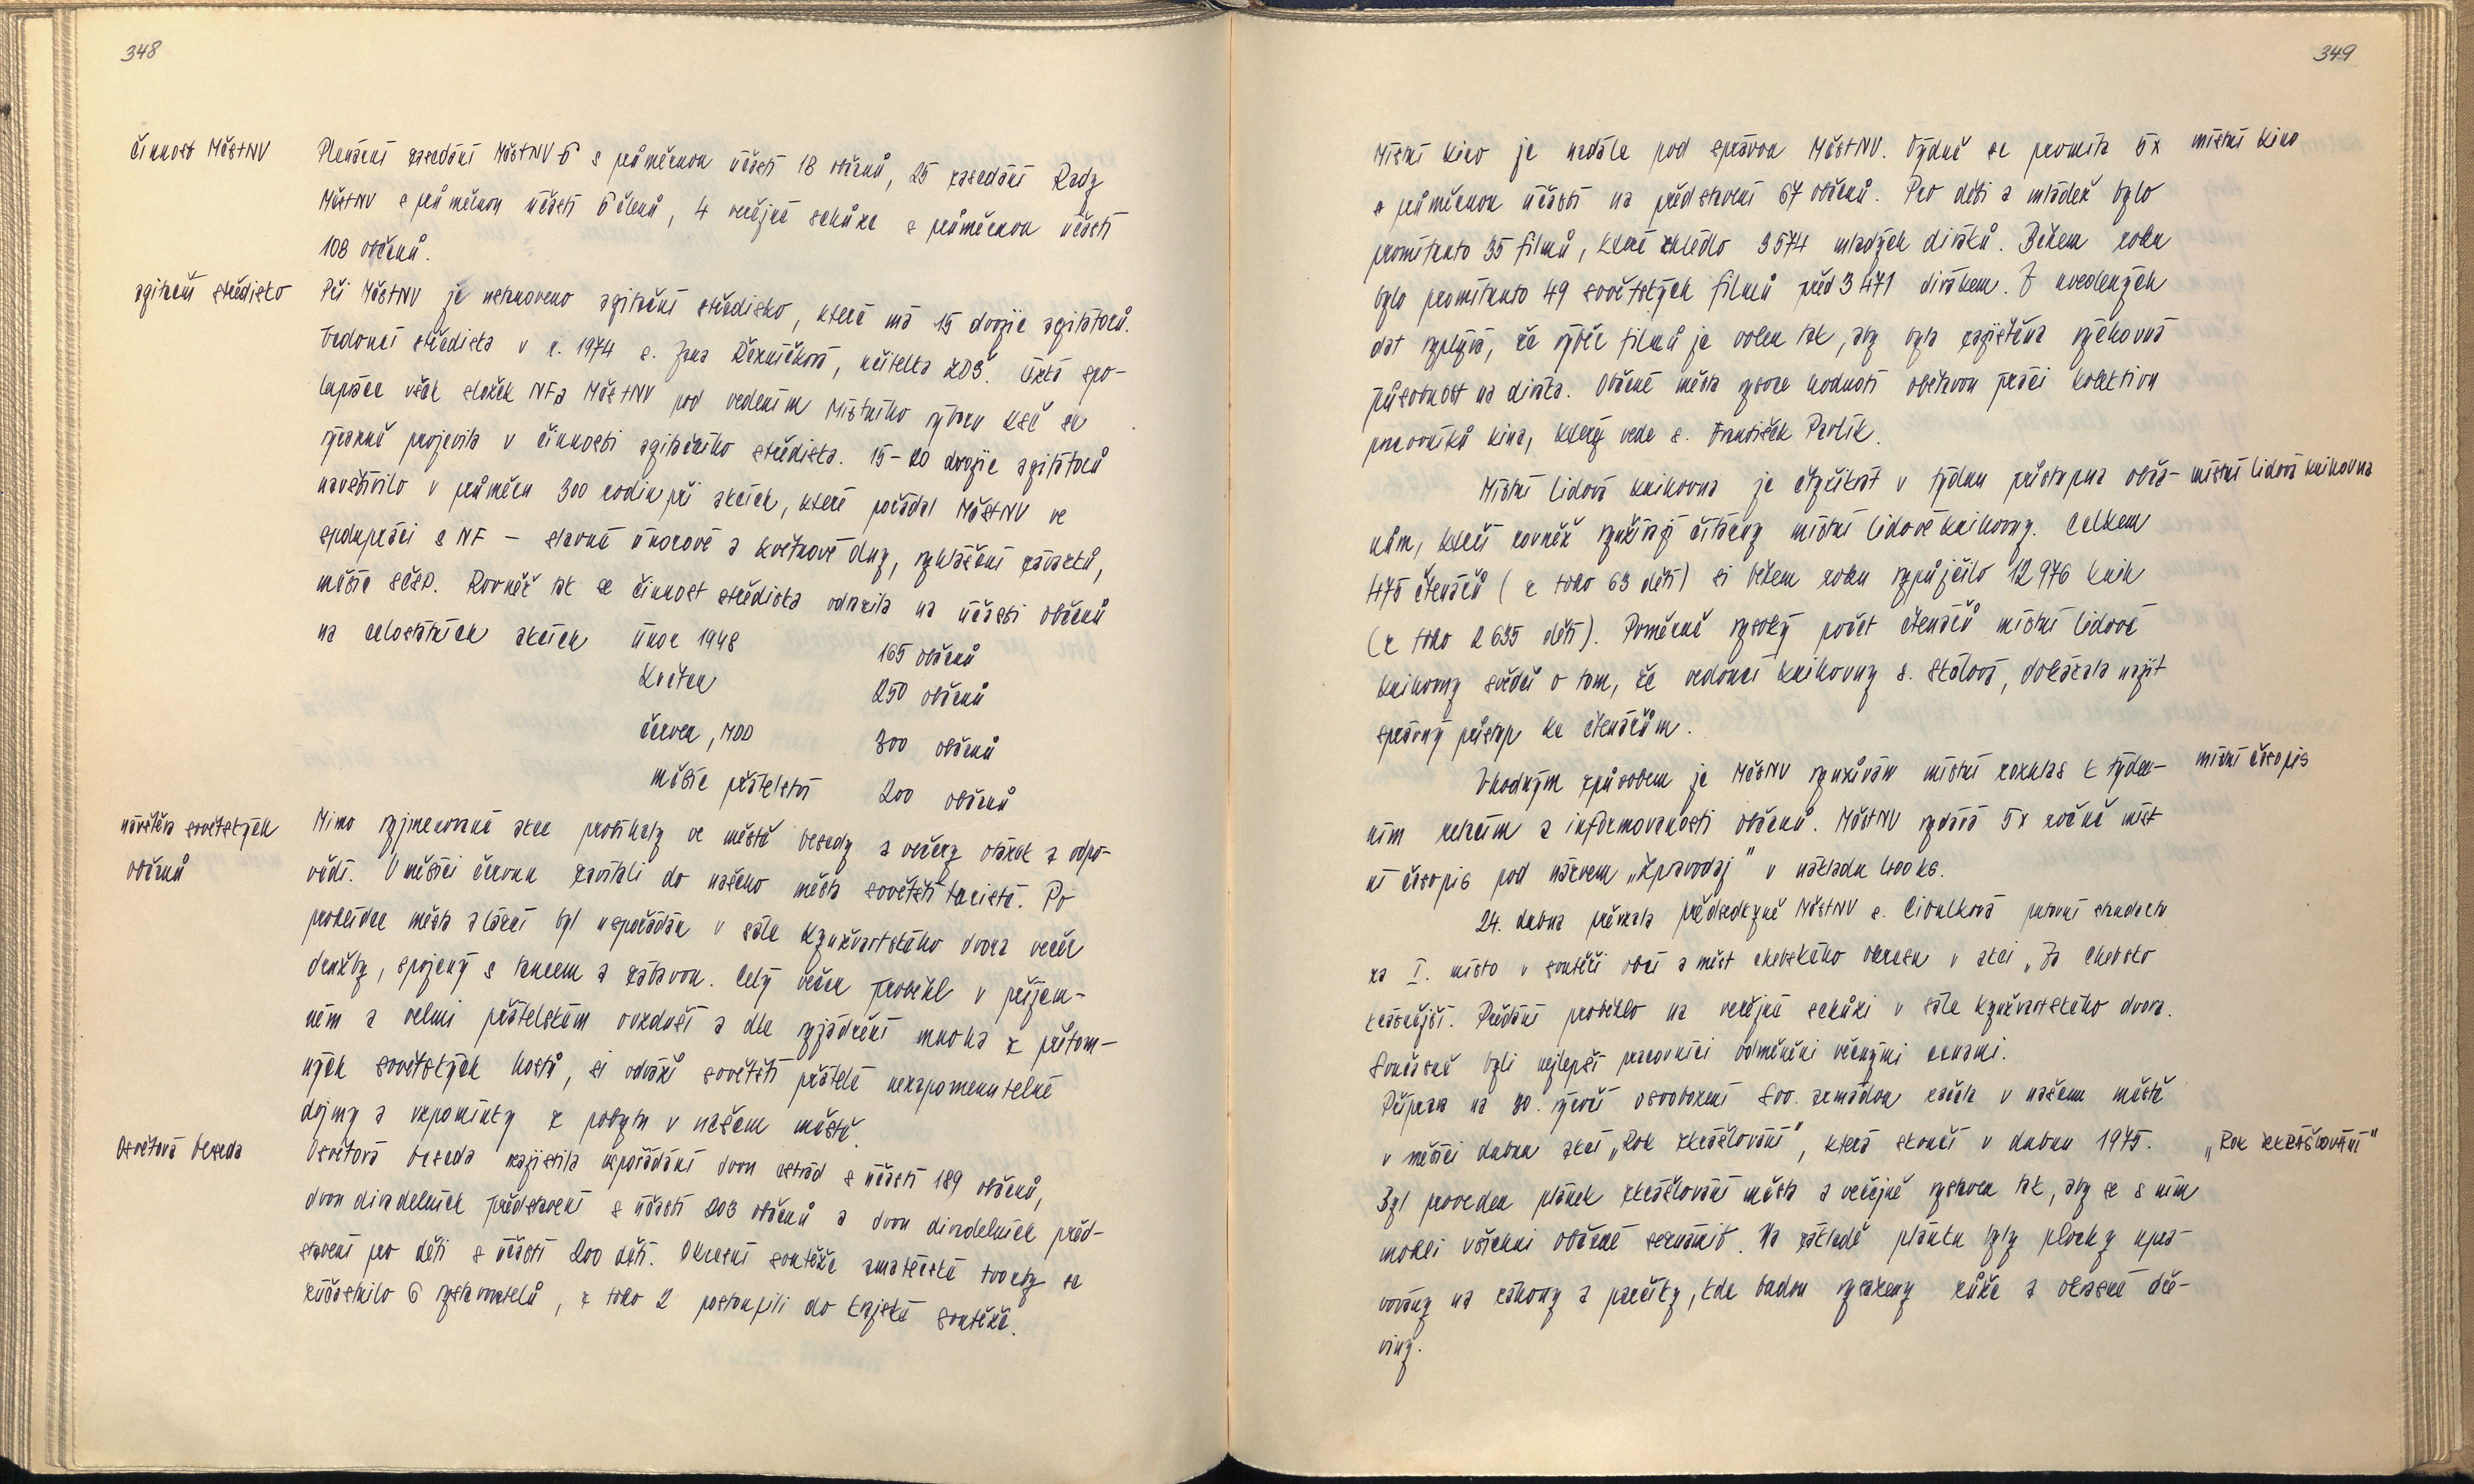 348
činnost MěstNV
Plenární zasedání MěstNV 6 s průměrnou účastí 18 občanů, 25 zasedání Rady
MěstNV s průměrnou účastí 6 členů, 4 veřejné schůze s průměrnou účastí
108 občanů.
agitační středisko
Při MěstNV je ustanoveno agitační středisko, které má 15 dvojic agitátorů.
Vedoucí střediska v r. 1974 s. Jana Řezníčková, učitelka ZDŠ. Úzká spo-
lupráce všech složek NF a MěstNV pod vedením Místního výboru KSČ se
výrazně projevila v činnosti agitačního střediska. 15-20 dvojic agitátorů
navštívilo v průměru 300 rodin při akcích, které pořádal MěstNV ve
spolupráci s NF - slavné únorové a květnové dny, vyhlášení závazků,
měsíc SČSP. Rovněž tak se činnost střediska odrazila na účasti občanů
na celostátních akcích únor 1948 165 občanů
Květen 250 občanů
červen, MDD 300 občanů
měsíc přátelství 200 občanů
návštěva sovětských
občanů
Mimo vyjmenované akce probíhaly ve městě besedy a večery otázek a odpo-
vědí. V měsíci červnu zavítali do našeho města sovětští turisté. Po
prohlídce města a lázní byl uspořádán v sále Kynžvartského dvora večer
družby, spojený s tancem a zábavou. Celý večer proběhl v příjem-
ném a velmi přátelském ovzduší a dle vyjádření mnoha z přítom-
ných sovětských hostů, si odváží sovětští přátelé nezapomenutelné
dojmy a vzpomínky z pobytu v našem městě.
Osvětová beseda
Osvětová beseda zajistila uspořádání dvou estrád s účastí 189 občanů,
dvou divadelních představení s účastí 203 občanů a dvou divadelních před-
stavení pro děti s účastí 200 dětí. Okresní soutěže amatérské tvorby se
zúčastnilo 6 vystavovatelů, z toho 2 postoupili do krajské soutěže.
349
Místní kino je nadále pod správou MěstNV. Týdně se promítá 5x
místní kino
s průměrnou účastí na představení 67 občanů. Pro děti a mládež bylo
promítnuto 35 filmů, které zhlédlo 3574 mladých diváků. Během roku
bylo promítnuto 49 sovětských filmů před 3471 divákem. Z uvedených
dat vyplývá, že výběr filmů je volen tak, aby byla zajištěna výchovná
působnost na diváka. Občané města vysoce hodnotí obětavou práci kolektivu
pracovníků kina, který vede s. František Pavlík.
Místní lidová knihovna je čtyřikrát v týdnu přístupna obča-
místní lidová knihovna
nům, kteří rovněž využívají čítárny místní lidové knihovny. Celkem
475 čtenářů (z toho 63 dětí) si během roku vypůjčilo 12976 knih
(z toho 2635 děti). Poměrně vysoký počet čtenářů místní lidové
knihovny svědčí o tom, že vedoucí knihovny s. Skálová, dokázala najít
správný přístup ke čtenářům.
Vhodným způsobem je MěstNV využíván místní rozhlas k týden-
místní časopis
ním relacím a informovanosti občanů. MěstNV vydává 5x ročně míst
ní časopis pod názvem „Zpravodaj" v nákladu 400 ks.
24. dubna převzala předsedkyně MěstNV s. Cibulková putovní standartu
za I. místo v soutěži obcí a měst chebského okresu v akci „Za Chebsko
krásnější. Předání proběhlo na veřejné schůzi v sále Kynžvartského dvora.
Současně byli nejlepší pracovníci odměněni věcnými cenami.
Příprava na 30. výročí osvobození Sov. armádou začala v našem městě
v měsíci dubnu akcí „Rok zkrášlování", která skončí v dubnu 1975.
„Rok zkrášlování"
Byl proveden plánek zkrášlování města a veřejně vystaven tak, aby se s ním
mohli všichni občané seznámit. Na základě plánku byly plochy upra-
vovány na záhony a parčíky, kde budou vysazeny růže a okrasné dře-
viny.